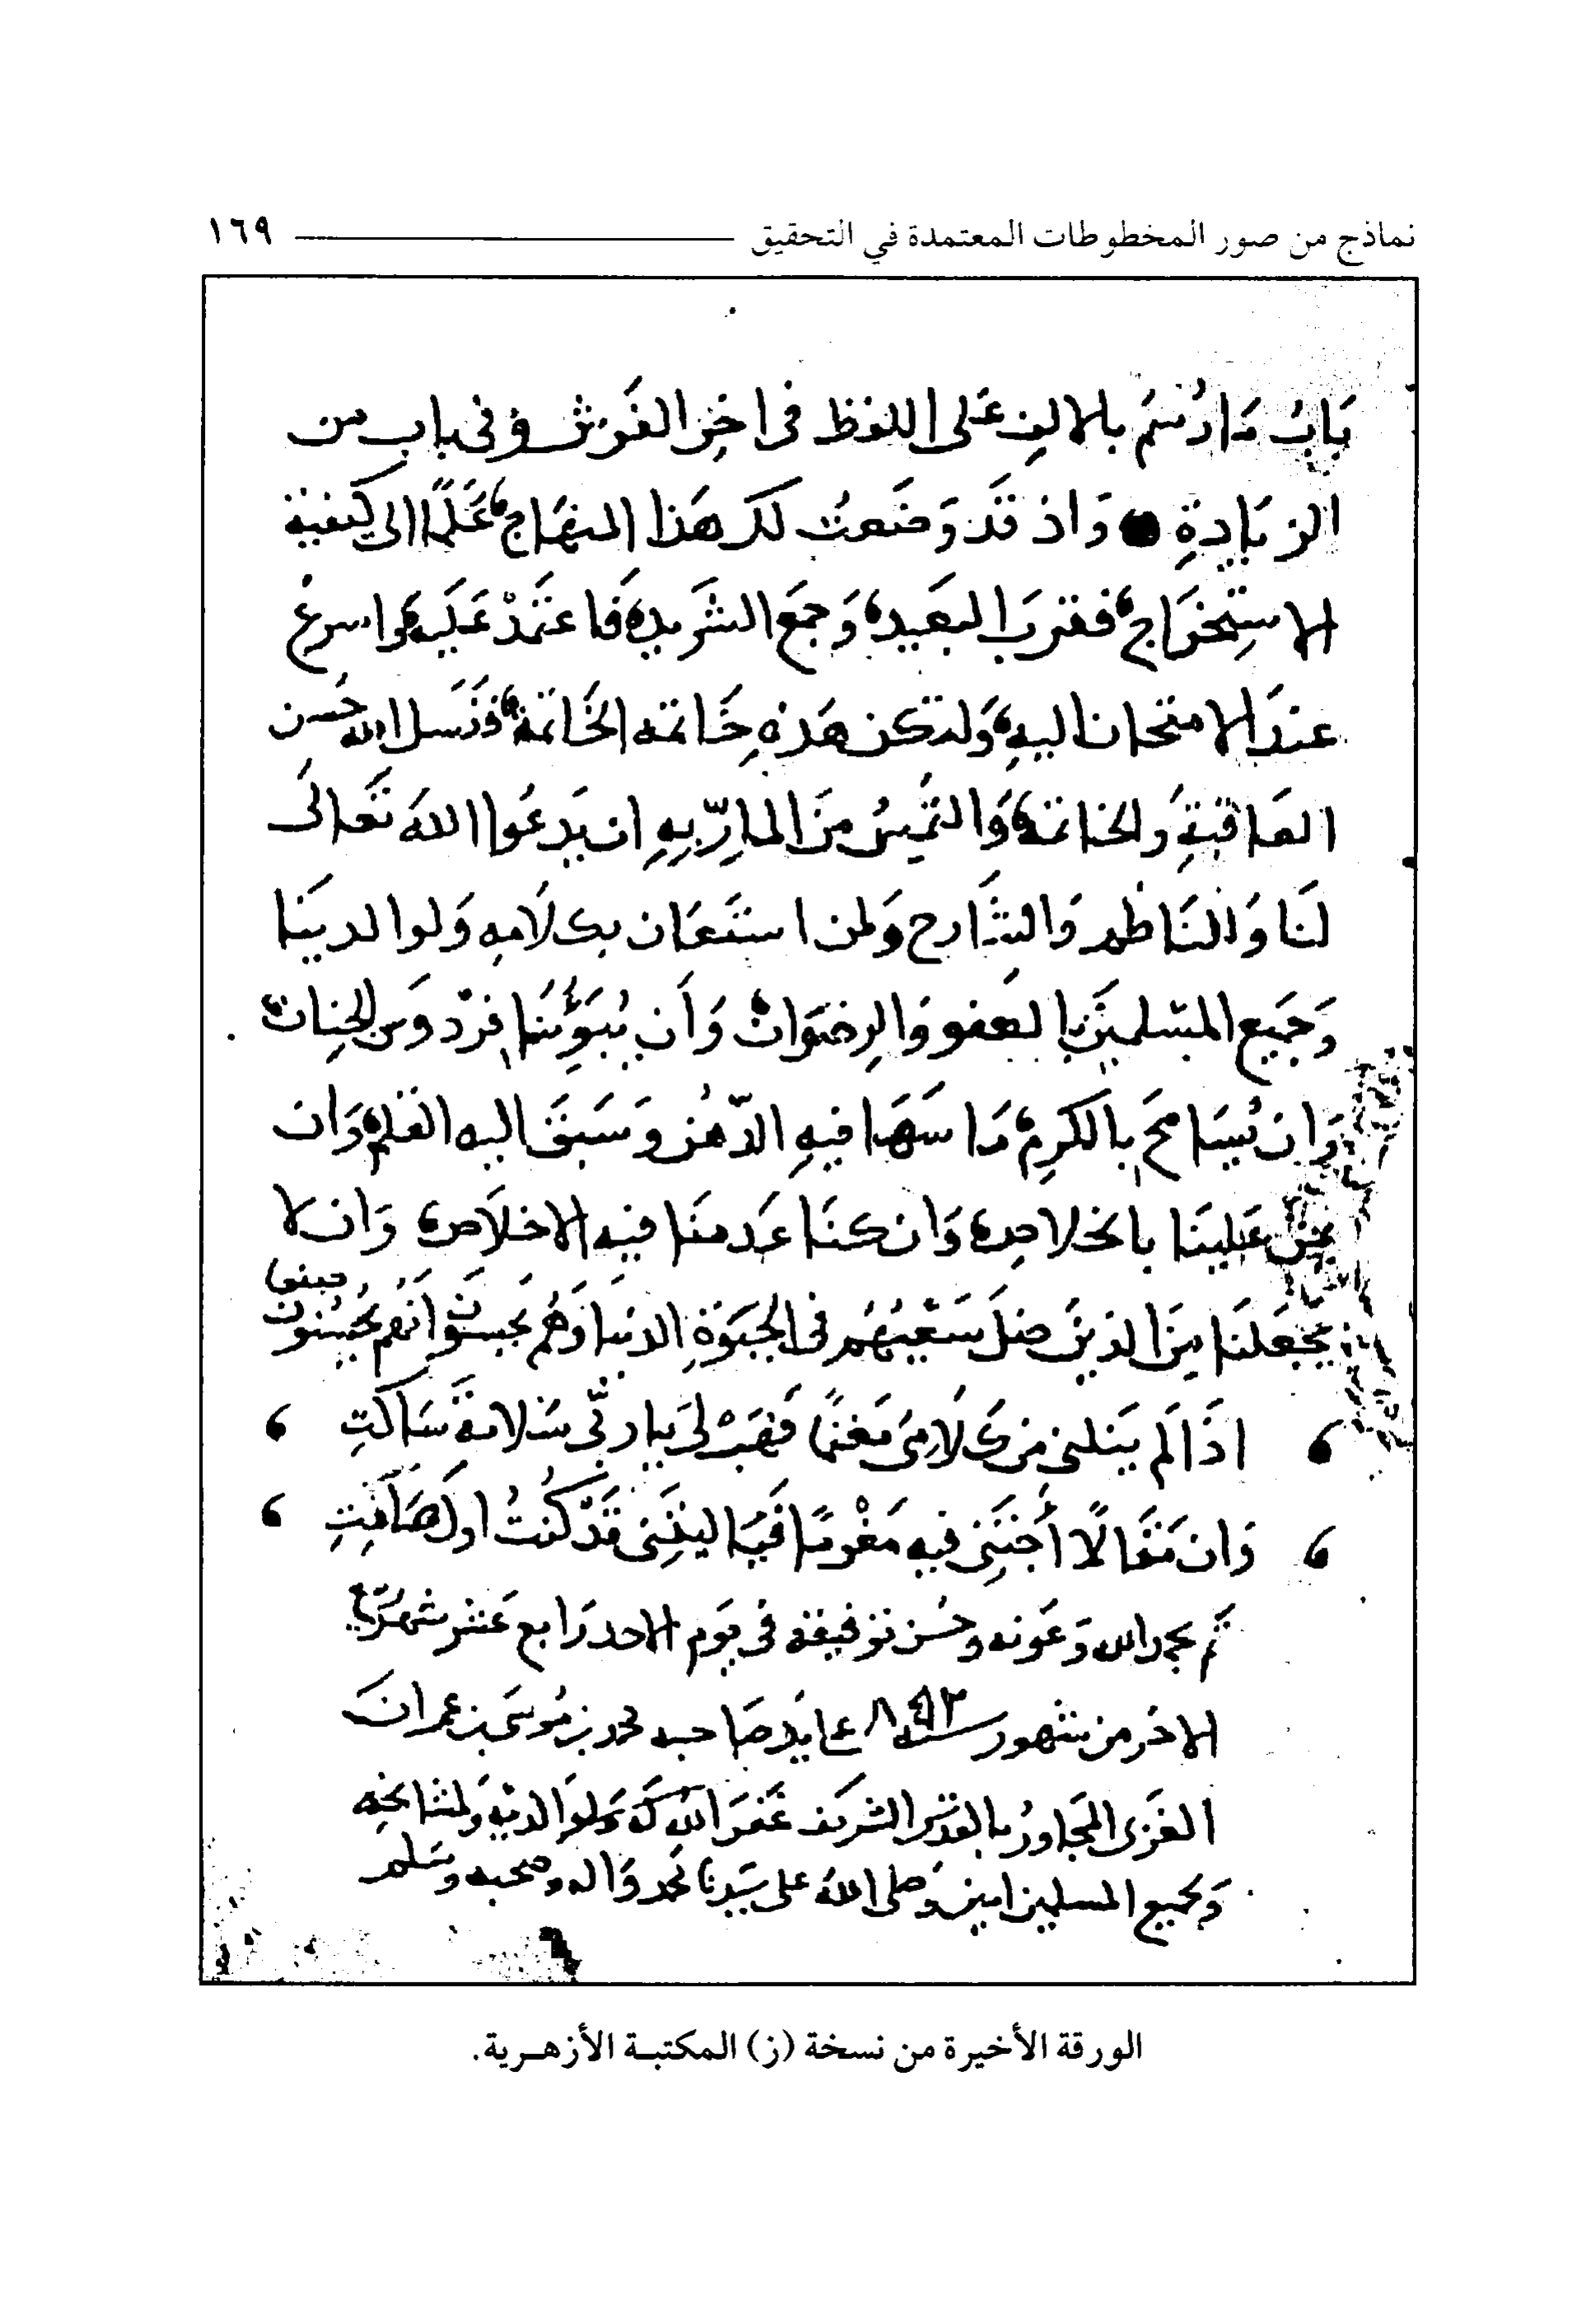 نماذج من صور المخطوطات المعتمدة في التحقيق ١٦٩
بَابُ مَا رُسِمَ بالالفِ عَلى اللفظ فى اخِرِ الفَرش وفى باب من
الزيَادةِ وَاذ قَد وَضَعتُ لك هَذا المنهَاج عَلَمًا الى كيفية
الاستِخرَاج فقربَ البَعِيد وَجمَع الشَريد فَاعتَمِدْ عَلَيه واسرِع
عندَ الامتحان اليهِ وَلتكن هَذهِ خَاتمة الخَاتمة فنَسَل الله حُسن
العَاقبَةِ والخاتمة وَالتمِسُ مِنَ المارِّ بِهِ ان يَدعُوا اللهَ تَعَالَى
لنَا وَللنَاظم وَالشَارح وَلمن استَعَان بِكلَامِهِ وَلوالدينَا
وَجَمِيع المسْلمِينَ بِالعَفو وَالرِضوَان وَأن يُبَوِّئَنَا فِرْدَوسَ الجِنان
وَان يُسَامِحَ بِالكرِم مَا سَهَا فيهِ الذّهن وَسَبَقَ اليه القلم وَان
يمن عَلينَا بالخلاص وَان كنَا عَدمنَا فيه الاخلَاص وَان لا
يَجعَلنَا مِنَ الذينَ ضلَ سَعْيُهُم فى الحيَوٰةِ الدنيا وَهُم يَحسَبوُنَ انَهم يُحْسِنُونَ
اذَا لَم يَنلنى مِن كَلَامِىَ مَغنمًا فَهَبْ لى يَا ربّى سَلَامةَ سَاكتِ
وَان مَقَالًا أجتَنى فيهِ مَغْرمًا فَيَا ليتَنِى قَدْ كُنتُ اول صَامِتِ
تم بحمد الله وَعَونه وحُسن توفيقه فى يَوم الاحد رَابع عَشر شهر رَبيع
الاخر من شهور سنة ٨٩٣ على يَد صَاحبه محمد بن مُوسَى بن عمرانَ
الغَزى المجَاورُ بالقدس الشريف غَفَرَ اللهُ لَهُ وَلوَالديه وَلمشَايخه
وَلجميع المسلمين امين وَصَلى اللهُ على سَيدنا مُحمد وَاله وصحبه وَسَلم
الورقة الأخيرة من نسخة (ز) المكتبة الأزهرية.